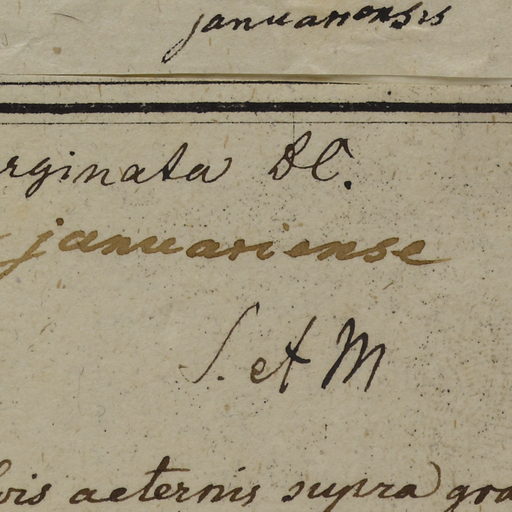 januariensis
rginata DC.
januariense
S. et M
vis aeternis supra gra